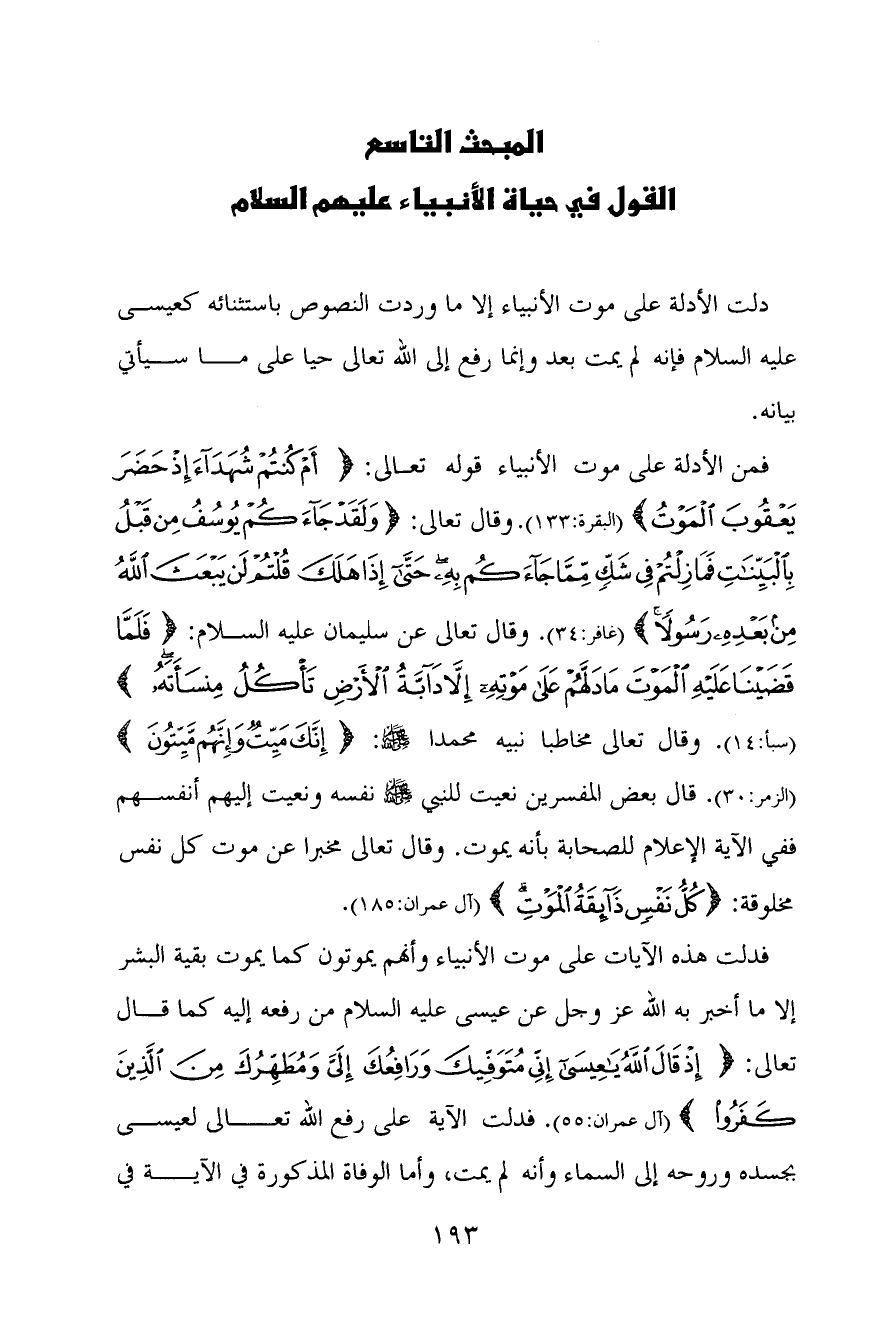 المبحث التاسع
القول في حياة الأنبياء عليهم السلام
دلت الأدلة على موت الأنبياء إلا ما وردت النصوص باستثنائه كعيسى
عليه السلام فإنه لم يمت بعد وإنما رفع إلى الله تعالى حيا على ما سيأتي
بيانه.
فمن الأدلة على موت الأنبياء قوله تعالى: ﴿ أَمْ كُنتُمْ شُهَدَآءَ إِذْ حَضَرَ
يَعْقُوبَ ٱلْمَوْتُ ﴾ (البقرة:١٣٣). وقال تعالى: ﴿ وَلَقَدْ جَآءَكُمْ يُوسُفُ مِن قَبْلُ
بِٱلْبَيِّنَٰتِ فَمَا زِلْتُمْ فِى شَكٍّ مِّمَّا جَآءَكُم بِهِۦۖ حَتَّىٰٓ إِذَا هَلَكَ قُلْتُمْ لَن يَبْعَثَ ٱللَّهُ
مِنۢ بَعْدِهِۦ رَسُولًاۚ ﴾ (غافر:٣٤). وقال تعالى عن سليمان عليه السلام: ﴿ فَلَمَّا
قَضَيْنَا عَلَيْهِ ٱلْمَوْتَ مَا دَلَّهُمْ عَلَىٰ مَوْتِهِۦٓ إِلَّا دَآبَّةُ ٱلْأَرْضِ تَأْكُلُ مِنسَأَتَهُۥۖ ﴾
(سبأ:١٤). وقال تعالى مخاطبا نبيه محمدا ﷺ: ﴿ إِنَّكَ مَيِّتٌ وَإِنَّهُم مَّيِّتُونَ ﴾
(الزمر:٣٠). قال بعض المفسرين نعيت للنبي ﷺ نفسه ونعيت إليهم أنفسهم
ففي الآية الإعلام للصحابة بأنه يموت. وقال تعالى مخبرا عن موت كل نفس
مخلوقة: ﴿ كُلُّ نَفْسٍ ذَآئِقَةُ ٱلْمَوْتِۗ ﴾ (آل عمران:١٨٥).
فدلت هذه الآيات على موت الأنبياء وأنهم يموتون كما يموت بقية البشر
إلا ما أخبر به الله عز وجل عن عيسى عليه السلام من رفعه إليه كما قال
تعالى: ﴿ إِذْ قَالَ ٱللَّهُ يَٰعِيسَىٰٓ إِنِّى مُتَوَفِّيكَ وَرَافِعُكَ إِلَىَّ وَمُطَهِّرُكَ مِنَ ٱلَّذِينَ
كَفَرُوا۟ ﴾ (آل عمران:٥٥). فدلت الآية على رفع الله تعالى لعيسى
بجسده وروحه إلى السماء وأنه لم يمت، وأما الوفاة المذكورة في الآية في
١٩٣